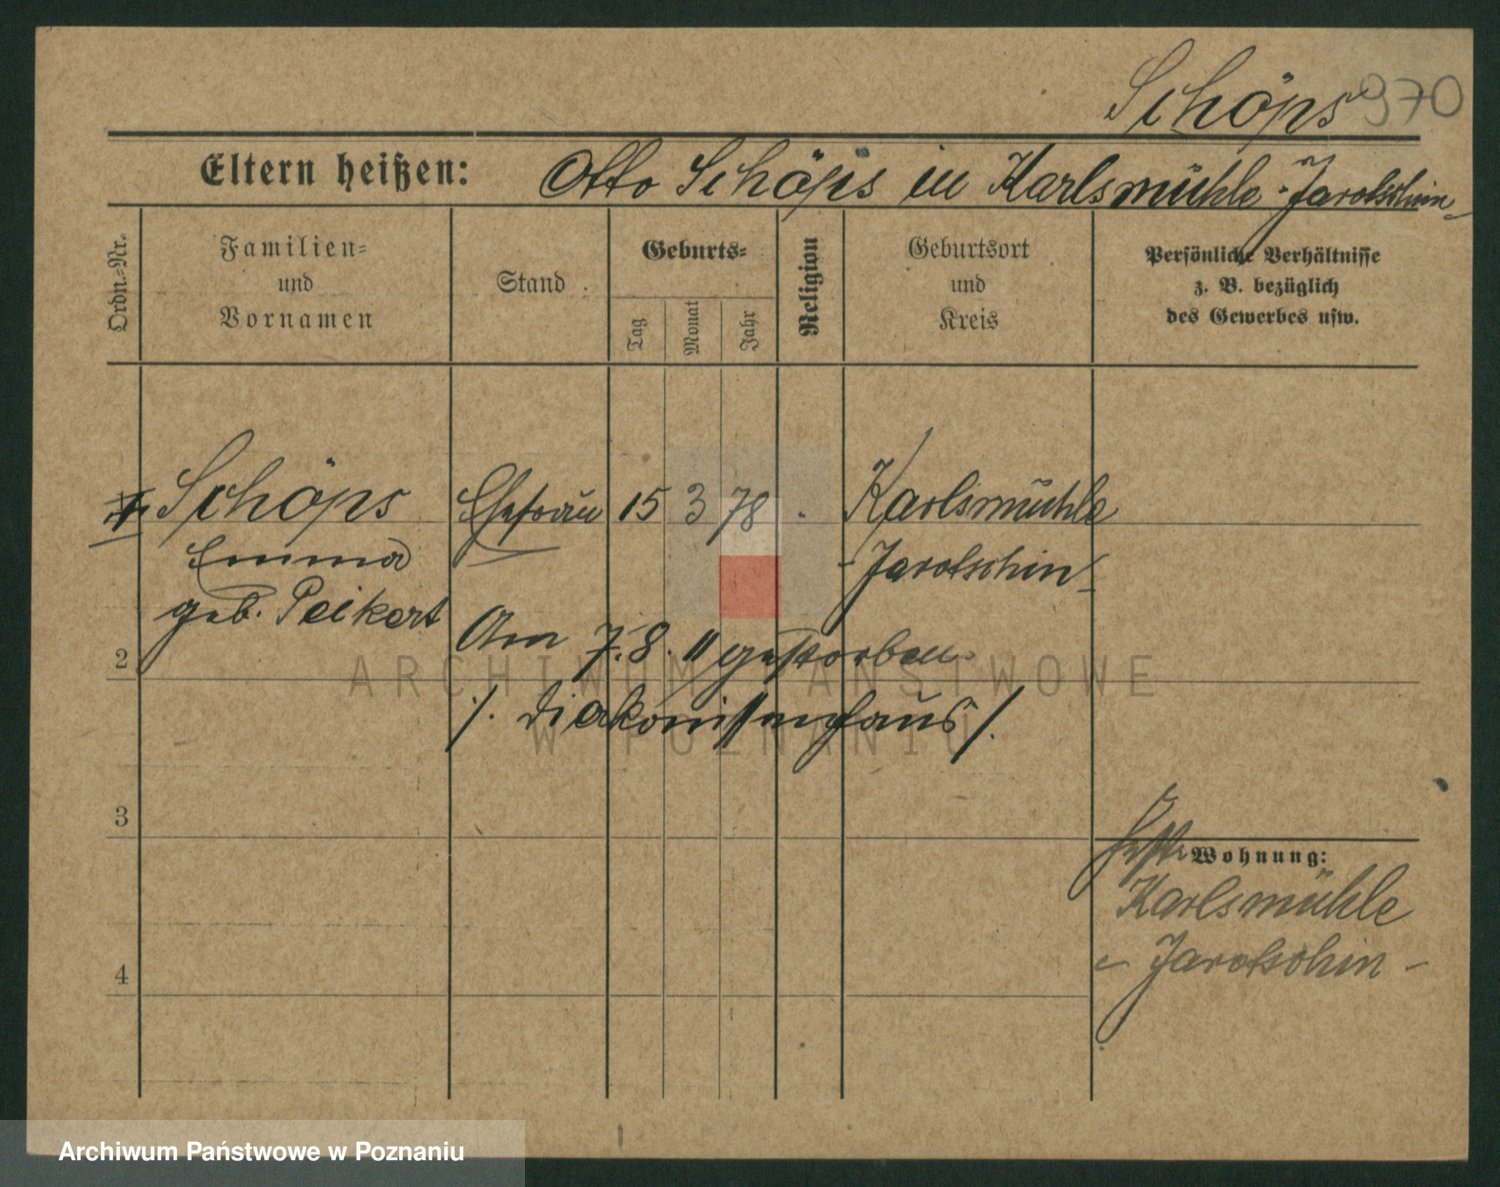 Schöps 970
Eltern heißen: Otto Schöps in Karlsmühle-Jarotschin
Ordn.=Nr.
Familien=
und
Vornamen
Stand
Geburts=
Tag
Monat
Jahr
Religion
Geburtsort
und
Kreis
Persönliche Verhältnisse
z. B. bezüglich
des Gewerbes usw.
Schöps Ehefrau 15 3 78 Karlsmühle
Emma - Jarotschin
geb. Peikert
Am 7.8.11 gestorben
2
/. Diakonissenhaus /.
3
Wohnung:
Karlsmühle
- Jarotschin -
4
ARCHIWUM PAŃSTWOWE
W POZNANIU
Archiwum Państwowe w Poznaniu